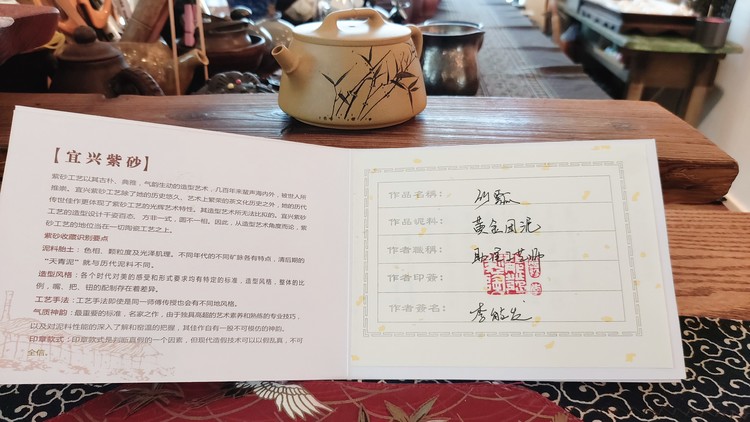 【宜兴紫砂】
紫砂工艺以其古朴、典雅,气韵生动的造型艺术,几百年来蜚声海内外,被世人所
推崇。宜兴紫砂工艺除了她的历史悠久、艺术上繁荣的茶文化历史之外,她的历代
传世佳作更体现了紫砂工艺的光辉艺术特性。其造型艺术所无法比和的。宜兴紫砂
工艺的造型设计千姿百态、方非一式,圆不一相。因此,从造型艺术角度而论,紫
砂工艺的地位当在一切陶瓷工艺之上。
紫砂收藏识别要点
泥料胎土:色相、颗粒度及光泽肌理。不同年代的不同矿脉各有特点,清后期的
“天青泥”就与历代泥料不同。
造型风格:各个时代对美的感受和形式要求均有特定的标准,造型风格,整体的比
例,嘴、把、钮的配制存在着差异。
工艺手法:工艺手法即使是同一师傅传授也会有不同地风格。
气质神韵:最重要的标准,名家之作,由于独具高超的艺术素养和熟练的专业技巧,
以及对泥料性能的深入了解和窑温的把握,其佳作自有一般不可模仿的神韵。
印章款式:印章款式是判断真假的一个因素,但现代造假技术可以以假乱真,不可
全信。
作品名称: 石瓢
作品泥料: 黄金段泥
作者职称:
作者印签:
作者签名: 李能发